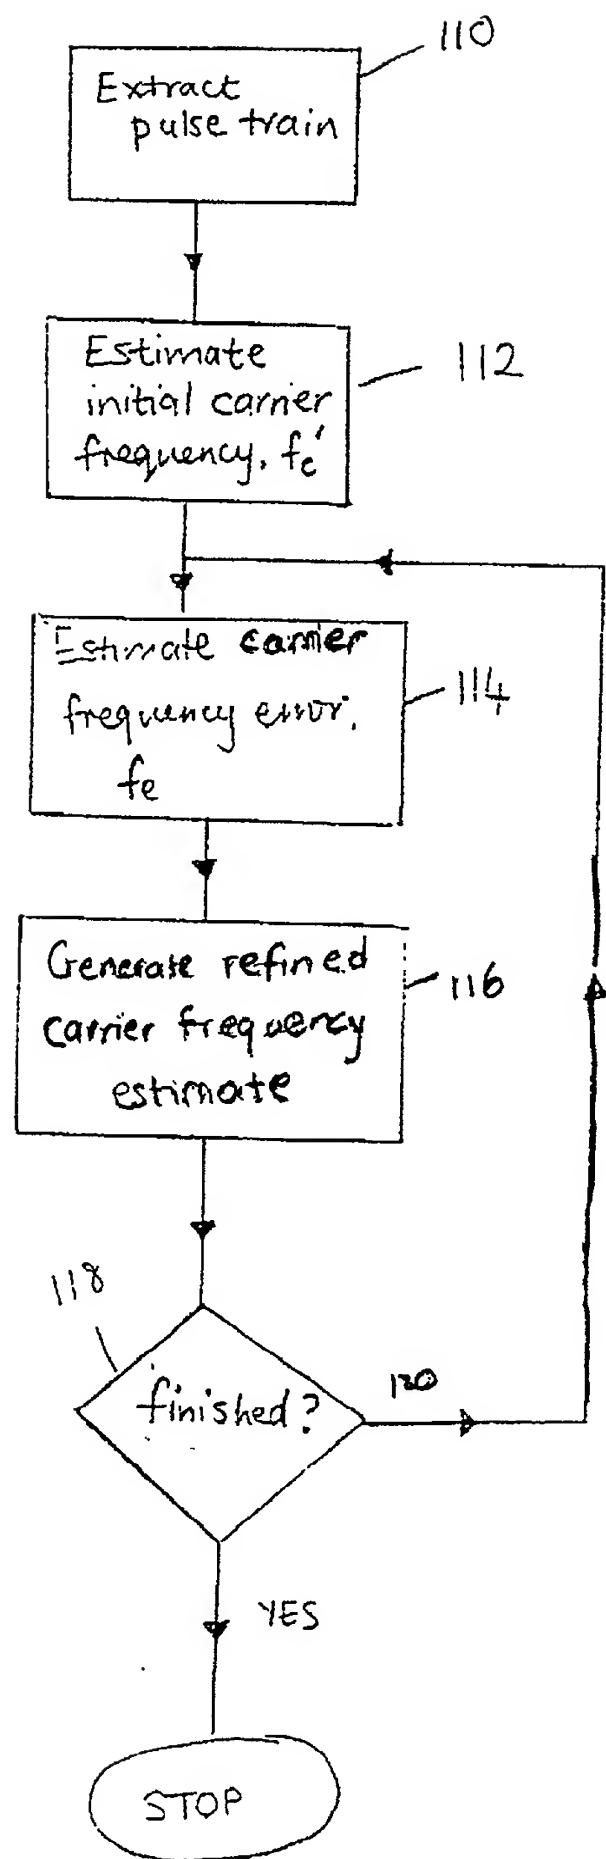 110
Extract
pulse train
112
Estimate
initial carrier
frequency, fc'
Estimate carrier
frequency error,
fe
114
Generate refined
carrier frequency
estimate
116
118
finished?
YES
STOP